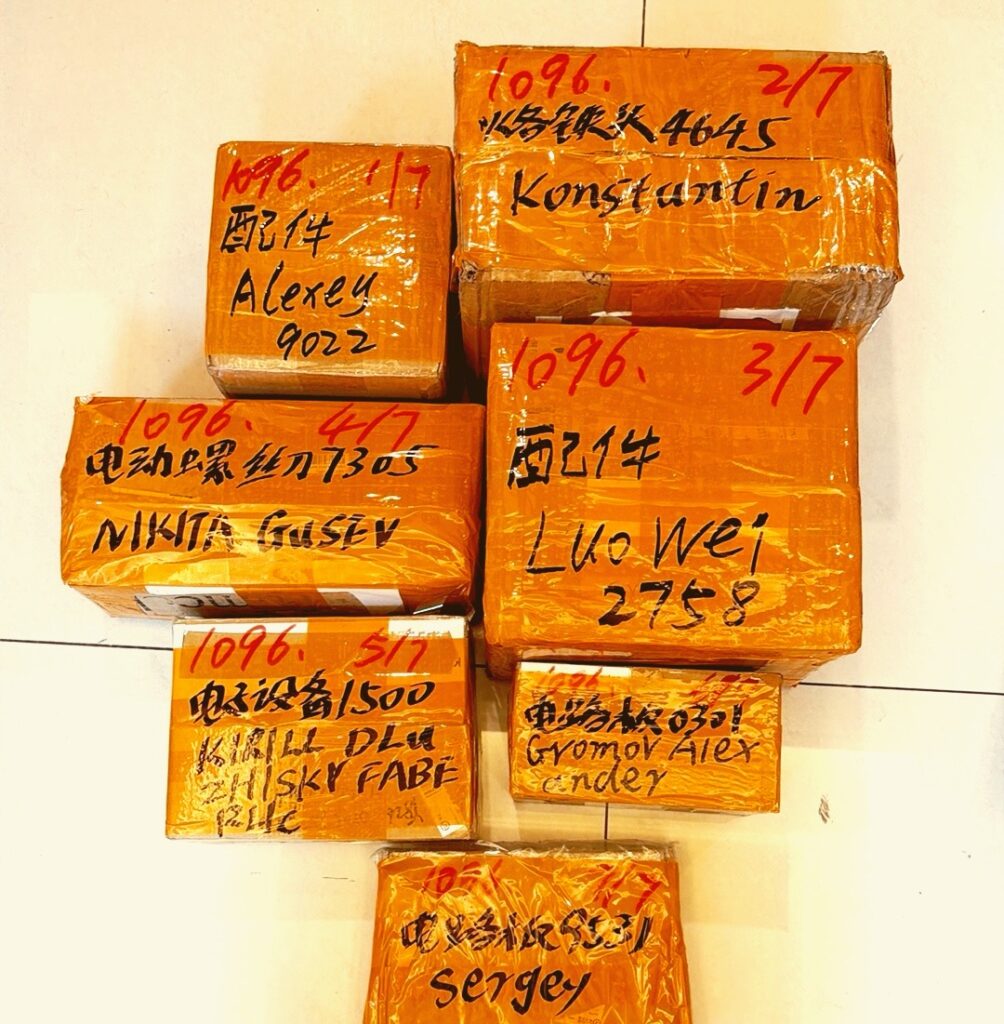 1096. 1/7
配件
Alexey
9022
1096. 2/7
铁头4645
Konstantin
1096. 3/7
配件
Luo Wei
2758
1096. 4/7
电动螺丝刀7305
NIKITA GUSEV
1096. 5/7
电子设备1500
KIRILL DLU
ZHISKY FABE
1096
电路板0301
Gromov Alex
ander
1096 7/7
电路板9531
Sergey